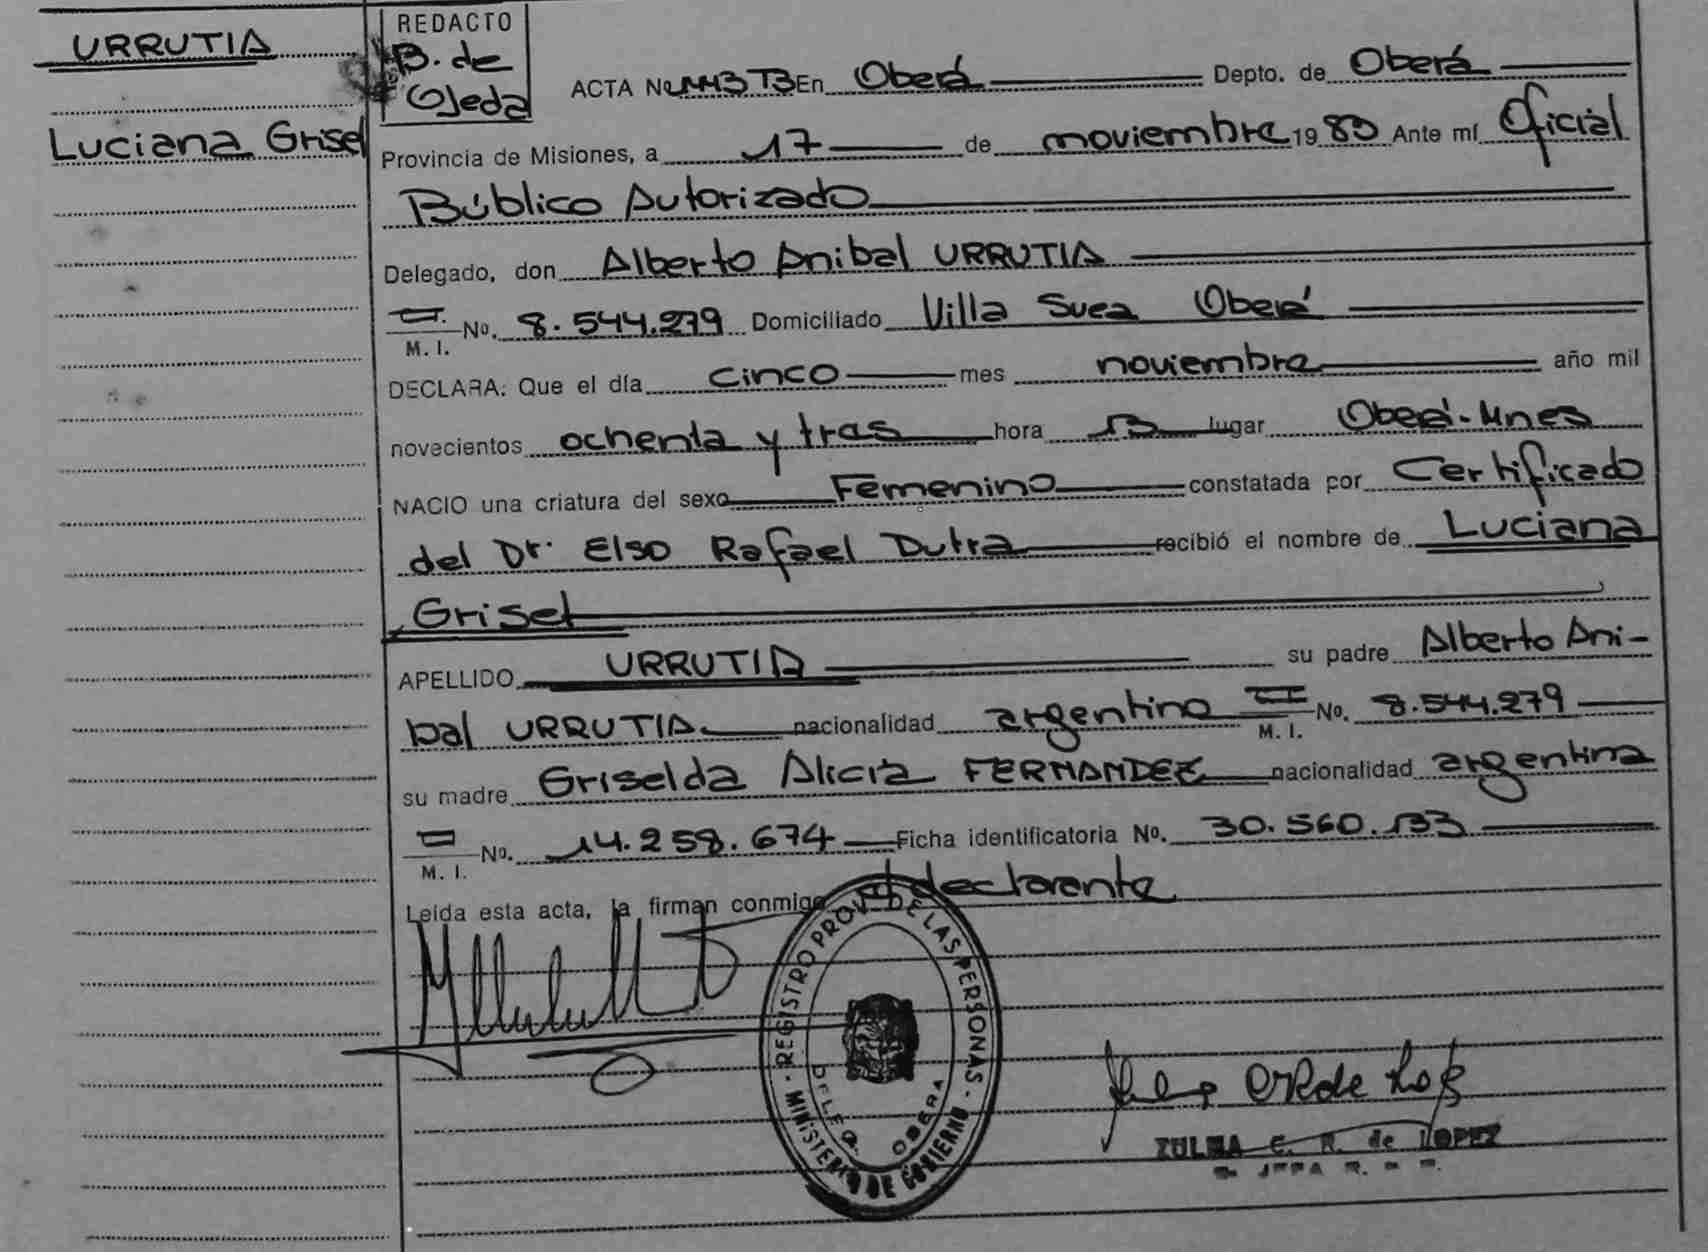 URRUTIA
Luciana Grisel
REDACTO
B. de
Ojeda
ACTA No 1143 T3 En Oberá Depto. de Oberá
Provincia de Misiones, a 17 de noviembre 1983 Ante mí Oficial
Público Autorizado
Delegado, don Alberto Anibal URRUTIA
M. I. No. 8.544.279 Domiciliado Villa Svea Oberá
DECLARA: Que el día cinco mes noviembre año mil
novecientos ochenta y tres hora 13 lugar Oberá-Mnes
NACIO una criatura del sexo Femenino constatada por Certificado
del Dr. Elso Rafael Dutra recibió el nombre de Luciana
Grisel
APELLIDO URRUTIA su padre Alberto Ani-
bal URRUTIA nacionalidad argentino M. I. No. 8.544.279
su madre Griselda Alicia FERNANDEZ nacionalidad argentina
M. I. No. 14.258.674 Ficha identificatoria No. 30.560.133
Leida esta acta, la firman conmigo el declarante
REGISTRO PROV. DE LAS PERSONAS - MINISTERIO DE GOBIERNO -
DELEG. OBERA
ZULMA C. R. de LOPEZ